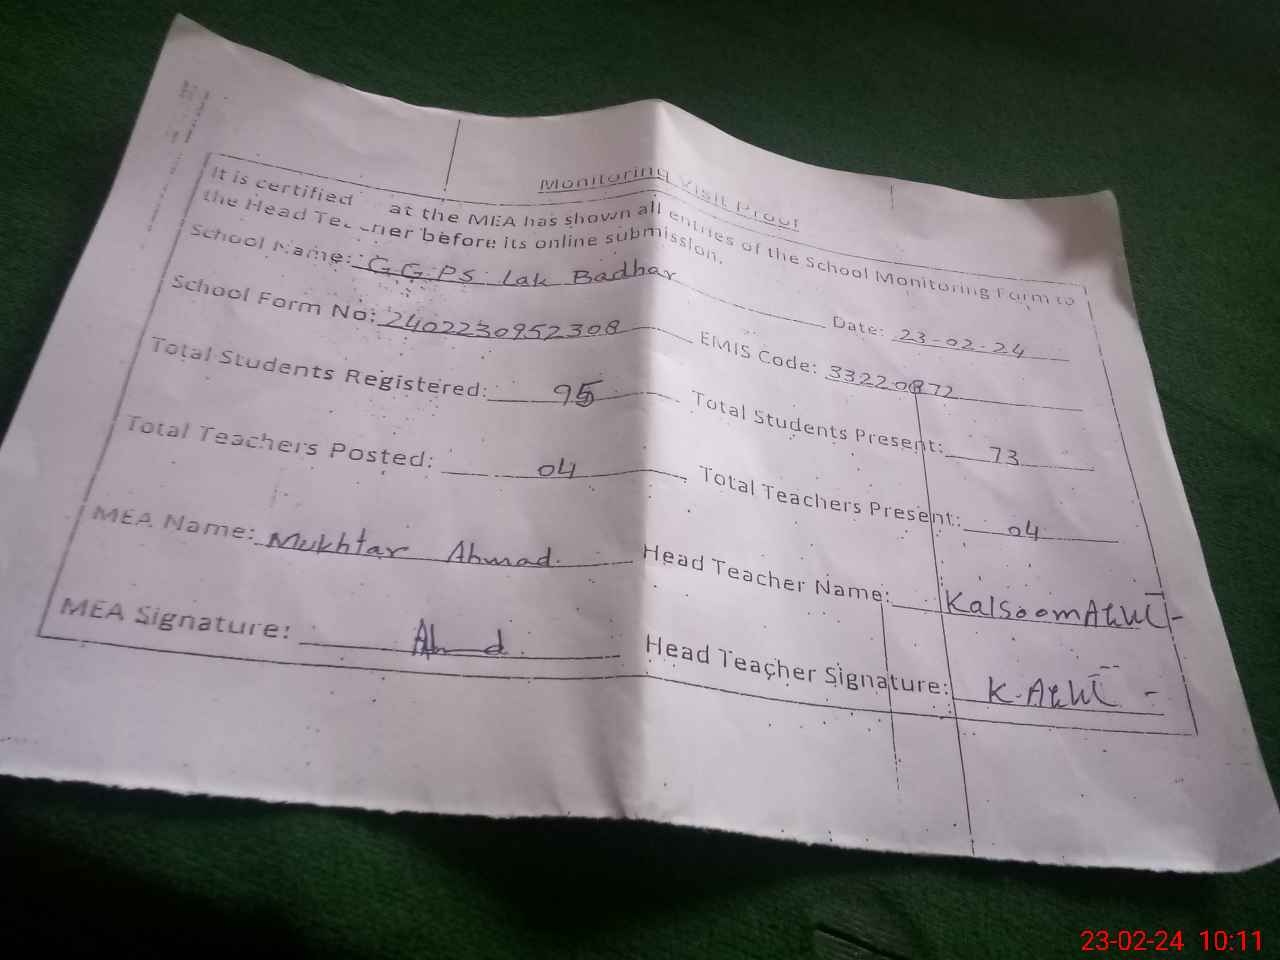 Monitoring Visit Proof
It is certified at the MEA has shown all entries of the School Monitoring Form to
the Head Teacher before its online submission.
School Name: GGPS Lak Badhar Date: 23-02-24
School Form No: 2402230952308 EMIS Code: 33220872
Total Students Registered: 95 Total Students Present: 73
Total Teachers Posted: 04 Total Teachers Present: 04
MEA Name: Mukhtar Ahmad. Head Teacher Name: Kalsoom
MEA Signature: Ahmd. Head Teacher Signature: K.
23-02-24 10:11